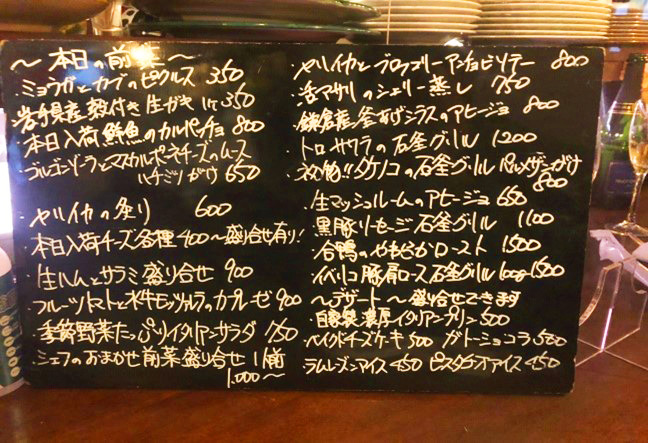 ～本日の前菜～
ミョウガとカブのピクルス 350
岩手県産殻付き生ガキ 1ケ 350
本日入荷鮮魚のカルパッチョ 800
ゴルゴンゾーラとマスカルポーネチーズのムース
ハチミツがけ 650
ヤリイカの炙り 600
本日入荷チーズ各種 400～盛り合せ有り!
生ハムとサラミ盛り合せ 900
フルーツトマトと水牛モッツァレラのカプレーゼ 900
季節野菜たっぷりイタリアンサラダ 750
シェフのおまかせ前菜盛り合せ 1人前
1,000～
・ヤリイカとブロッコリーアンチョビソテー 800
・活アサリのシェリー蒸し 750
・鎌倉産釜あげシラスのアヒージョ 800
・トロサワラの石釜グリル 1200
・初物!!タケノコの石釜グリル パルメザンがけ
800
・生マッシュルームのアヒージョ 650
・黒豚ソーセージ石釜グリル 1100
・合鴨のやわらかロースト 1500
・イベリコ豚肩ロース石釜グリル 100g 1500
～デザート～盛り合せできます
・自家製濃厚イタリアンプリン 500
・ベイクドチーズケーキ 500 ガトーショコラ 500
・ラムレーズンアイス 450 ピスタチオアイス 450